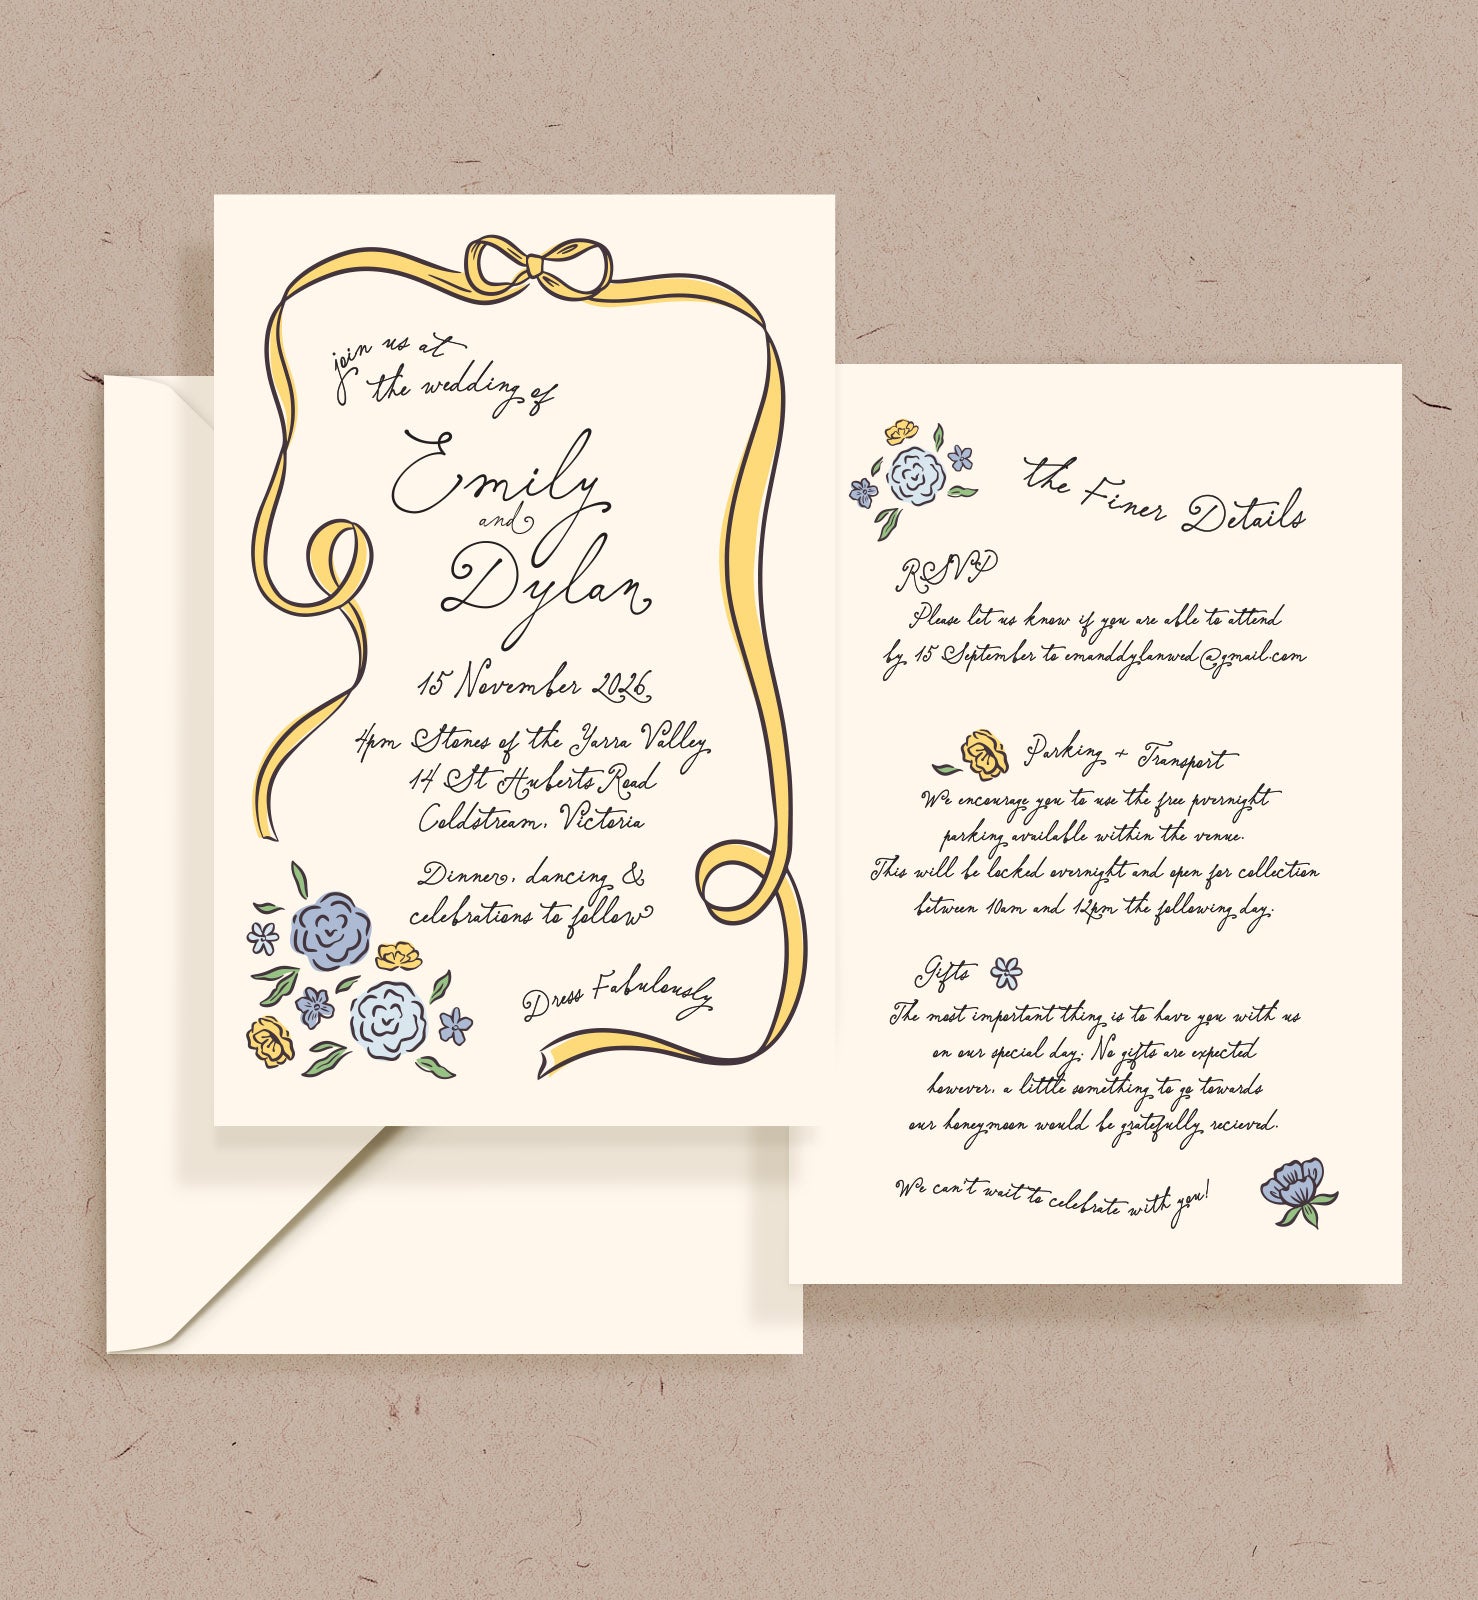 join us at
the wedding of
Emily
and
Dylan
15 November 2026
4pm Stones of the Yarra Valley
14 St Huberts Road
Coldstream, Victoria
Dinner, dancing &
celebrations to follow
Dress Fabulously
the Finer Details
RSVP
Please let us know if you are able to attend
by 15 September to emanddylanwed@gmail.com
Parking + Transport
We encourage you to use the free pvernight
parking available within the venue.
This will be locked overnight and open for collection
between 10am and 12pm the following day.
Gifts
The most important thing is to have you with us
on our special day. No gifts are expected
however, a little something to go towards
our honeymoon would be gratefully recieved.
We can't wait to celebrate with you!